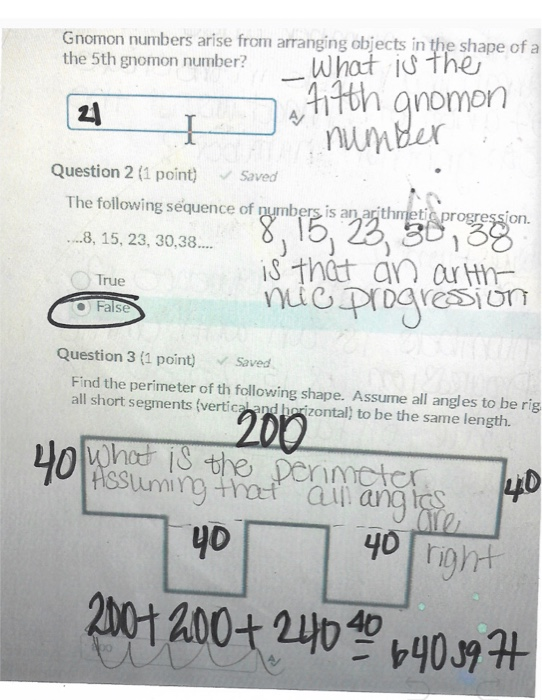 Gnomon numbers arise from arranging objects in the shape of a
the 5th gnomon number?
21
– What is the
fifth gnomon
number
Question 2 (1 point) ✓ Saved
The following sequence of numbers is an arithmetic progression.
....8, 15, 23, 30,38....
is
8, 15, 23, 30, 38
is that an arith-
mic progression
True
False
Question 3 (1 point) ✓ Saved
Find the perimeter of th following shape. Assume all angles to be rig
all short segments (vertical and horizontal) to be the same length.
200
40
What is the perimeter
Assuming that all angles
are
right
40
40
40
200+ 200+ 240 40 = 640 sq ft